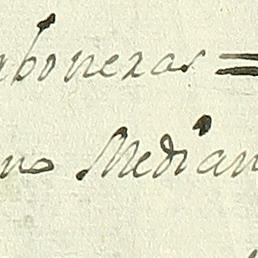 aboneras =
no Median